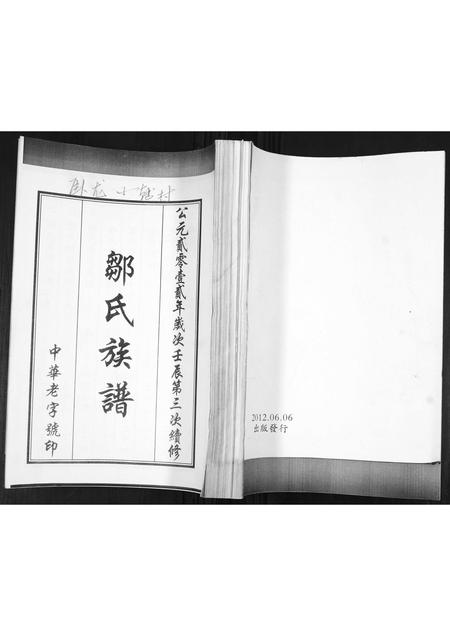 卧龙 小
村
公元貳零壹貳年歲次壬辰第三次續修
鄒氏族譜
中華老字號印
2012.06.06
出版發行